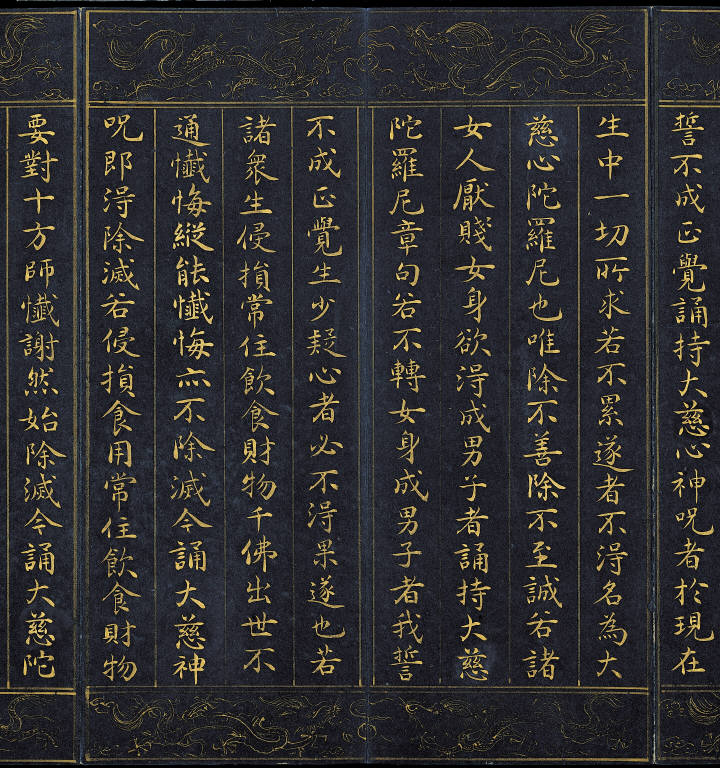 誓不成正覺誦持大慈心神呪者於現在
生中一切所求若不累遂者不淂名為大
慈心陀羅尼也唯除不善除不至誠若諸
女人厭賤女身欲淂成男子者誦持大慈
陀羅尼章句若不轉女身成男子者我誓
不成正覺生少疑心者必不淂果遂也若
諸衆生侵損常住飲食財物千佛出世不
通懺悔縱能懺悔亦不除滅今誦大慈神
呪即淂除滅若侵損食用常住飲食財物
要對十方師懺謝然始除滅今誦大慈陀